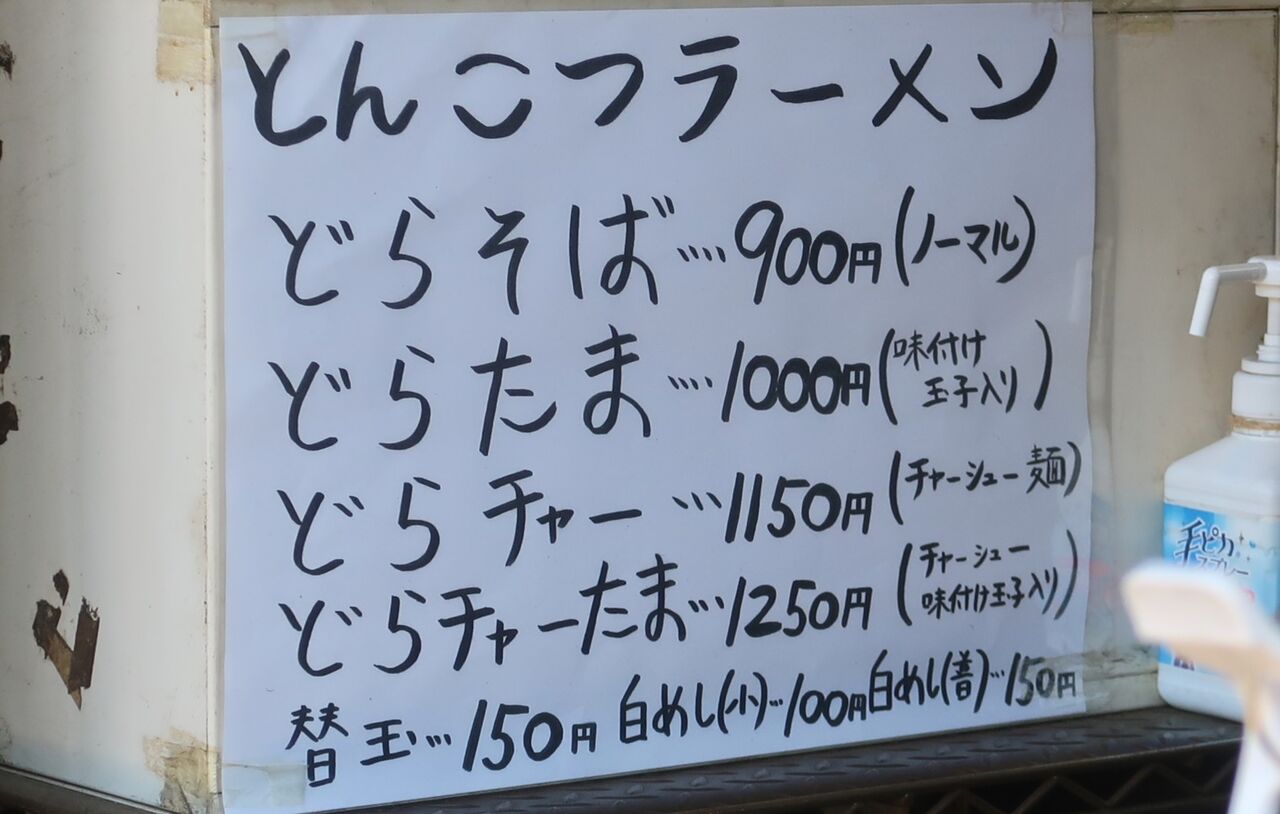 とんこつラーメン
どらそば…900円(ノーマル)
どらたま…1000円(味付け
玉子入り)
どらチャー…1150円(チャーシュー麺)
どらチャーたま…1250円(チャーシュー
味付け玉子入り)
替玉…150円 白めし(小)…100円 白めし(普)…150円
手ピカ
スプレー